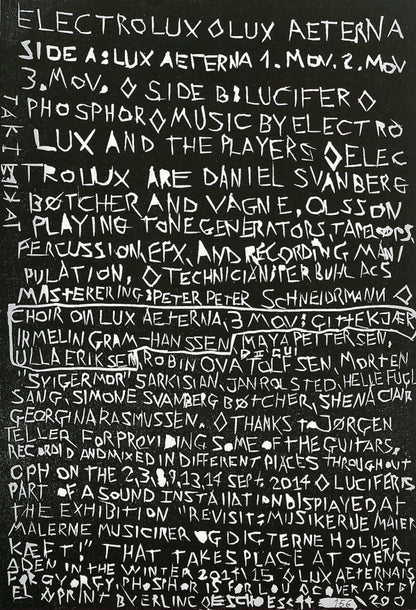 ELECTROLUX ◊ LUX AETERNA
SIDE A: LUX AETERNA 1. MOV. 2. MOV
3. MOV. ◊ SIDE B: LUCIFER ◊
PHOSPHOR ◊ MUSIC BY ELECTRO
LUX AND THE PLAYERS ◊ ELEC
TROLUX ARE DANIEL SVANBERG
BØTCHER AND VAGNE, OLSSON
PLAYING TONEGENERATORS, TAPELOOPS
PERCUSSION, EFX, AND RECORDING MANI
PULATION, ◊ TECHNICIAN: PER BUHL ACS
MASTERERING: PETER PETER SCHNEIDRMANN ◊
CHOIR ON LUX AETERNA, 3 MOV: GITTE KJÆR
IRMELIN GRAM-HANSSEN MAYA PETTERSEN,
ULLA ERIKSEN, ROBIN OVA TOLFSEN, MORTEN
"SVIGERMOR" SARKISIAN, JAN ROLSTED, HELLE FUGL
SANG, SIMONE SVANBERG BØTCHER, SHENA CLAIR
GEORGINA RASMUSSEN. ◊ THANKS to JØRGEN
TELLER FOR PROVIDING SOME OF THE GUITARS,
RECORDID AND MIXED IN DIFFERENT PLACES THROUGHOUT
CPH ON THE 2,3,8,9,13,14 SEPT. 2014 ◊ LUCIFER IS
PART OF A SOUND INSTALLATION DISPLAYED AT
THE EXHIBITION "REVISIT: MUSIKERUE MAIER
MALERNE MUSICIRER OG DIGTERNE HOLDER
KÆFT!" THAT TAKES PLACE AT OVENG
ADEN IN THE WINTER 2014/15 ◊ LUX AETERNA IS
FOR GYORGY. PHOSPHOR IS FOR LOU ◊ COVER ART:
156 / 200